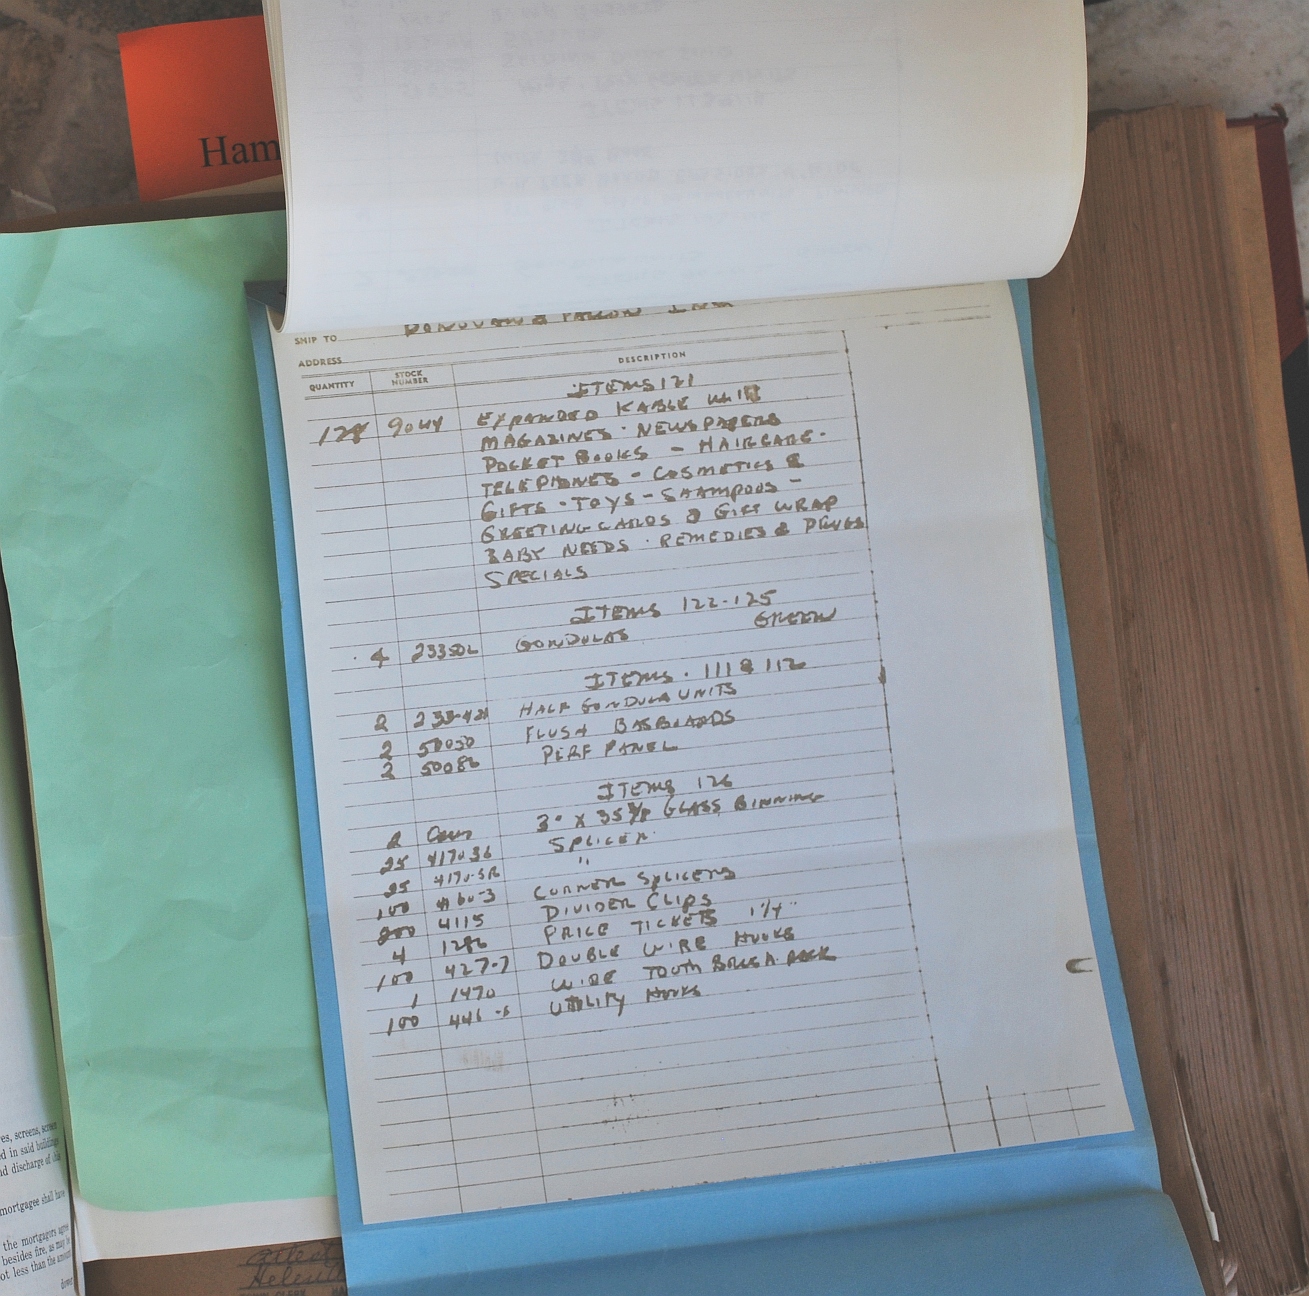 Ham
SHIP TO DONOVAN & FALLON INC
ADDRESS
QUANTITY STOCK NUMBER DESCRIPTION
ITEMS 121
128 9044 EXPANDED KABLE UNIT
MAGAZINES · NEWSPAPERS
POCKET BOOKS - HAIRCARE ·
TELEPHONES - COSMETICS &
GIFTS - TOYS - SHAMPOOS -
GREETING CARDS & GIFT WRAP
BABY NEEDS · REMEDIES & DRUGS
SPECIALS
ITEMS 122-125
GREEN
4 23350L GONDOLAS
ITEMS · 111 & 112
2 233-421 HALF GONDOLA UNITS
2 50050 FLUSH BASBOARDS
2 50086 PERF PANEL
ITEMS 126
2 3" X 35 GLASS BINNING
25 4170-36 SPLICER
25 4170-SR "
100 4160-3 CORNER SPLICERS
200 4115 DIVIDER CLIPS
4 1286 PRICE TICKETS 1 1/4"
100 427-7 DOUBLE WIRE HOOKS
1 1470 WIRE TOOTH BRUSH RACK
100 446-5 UTILITY HOOKS
es, screens, screen
d in said buildings
nd discharge of this
mortgagee shall have
the mortgagors agree
besides fire, as may be
ot less than the amount
dower
Attest